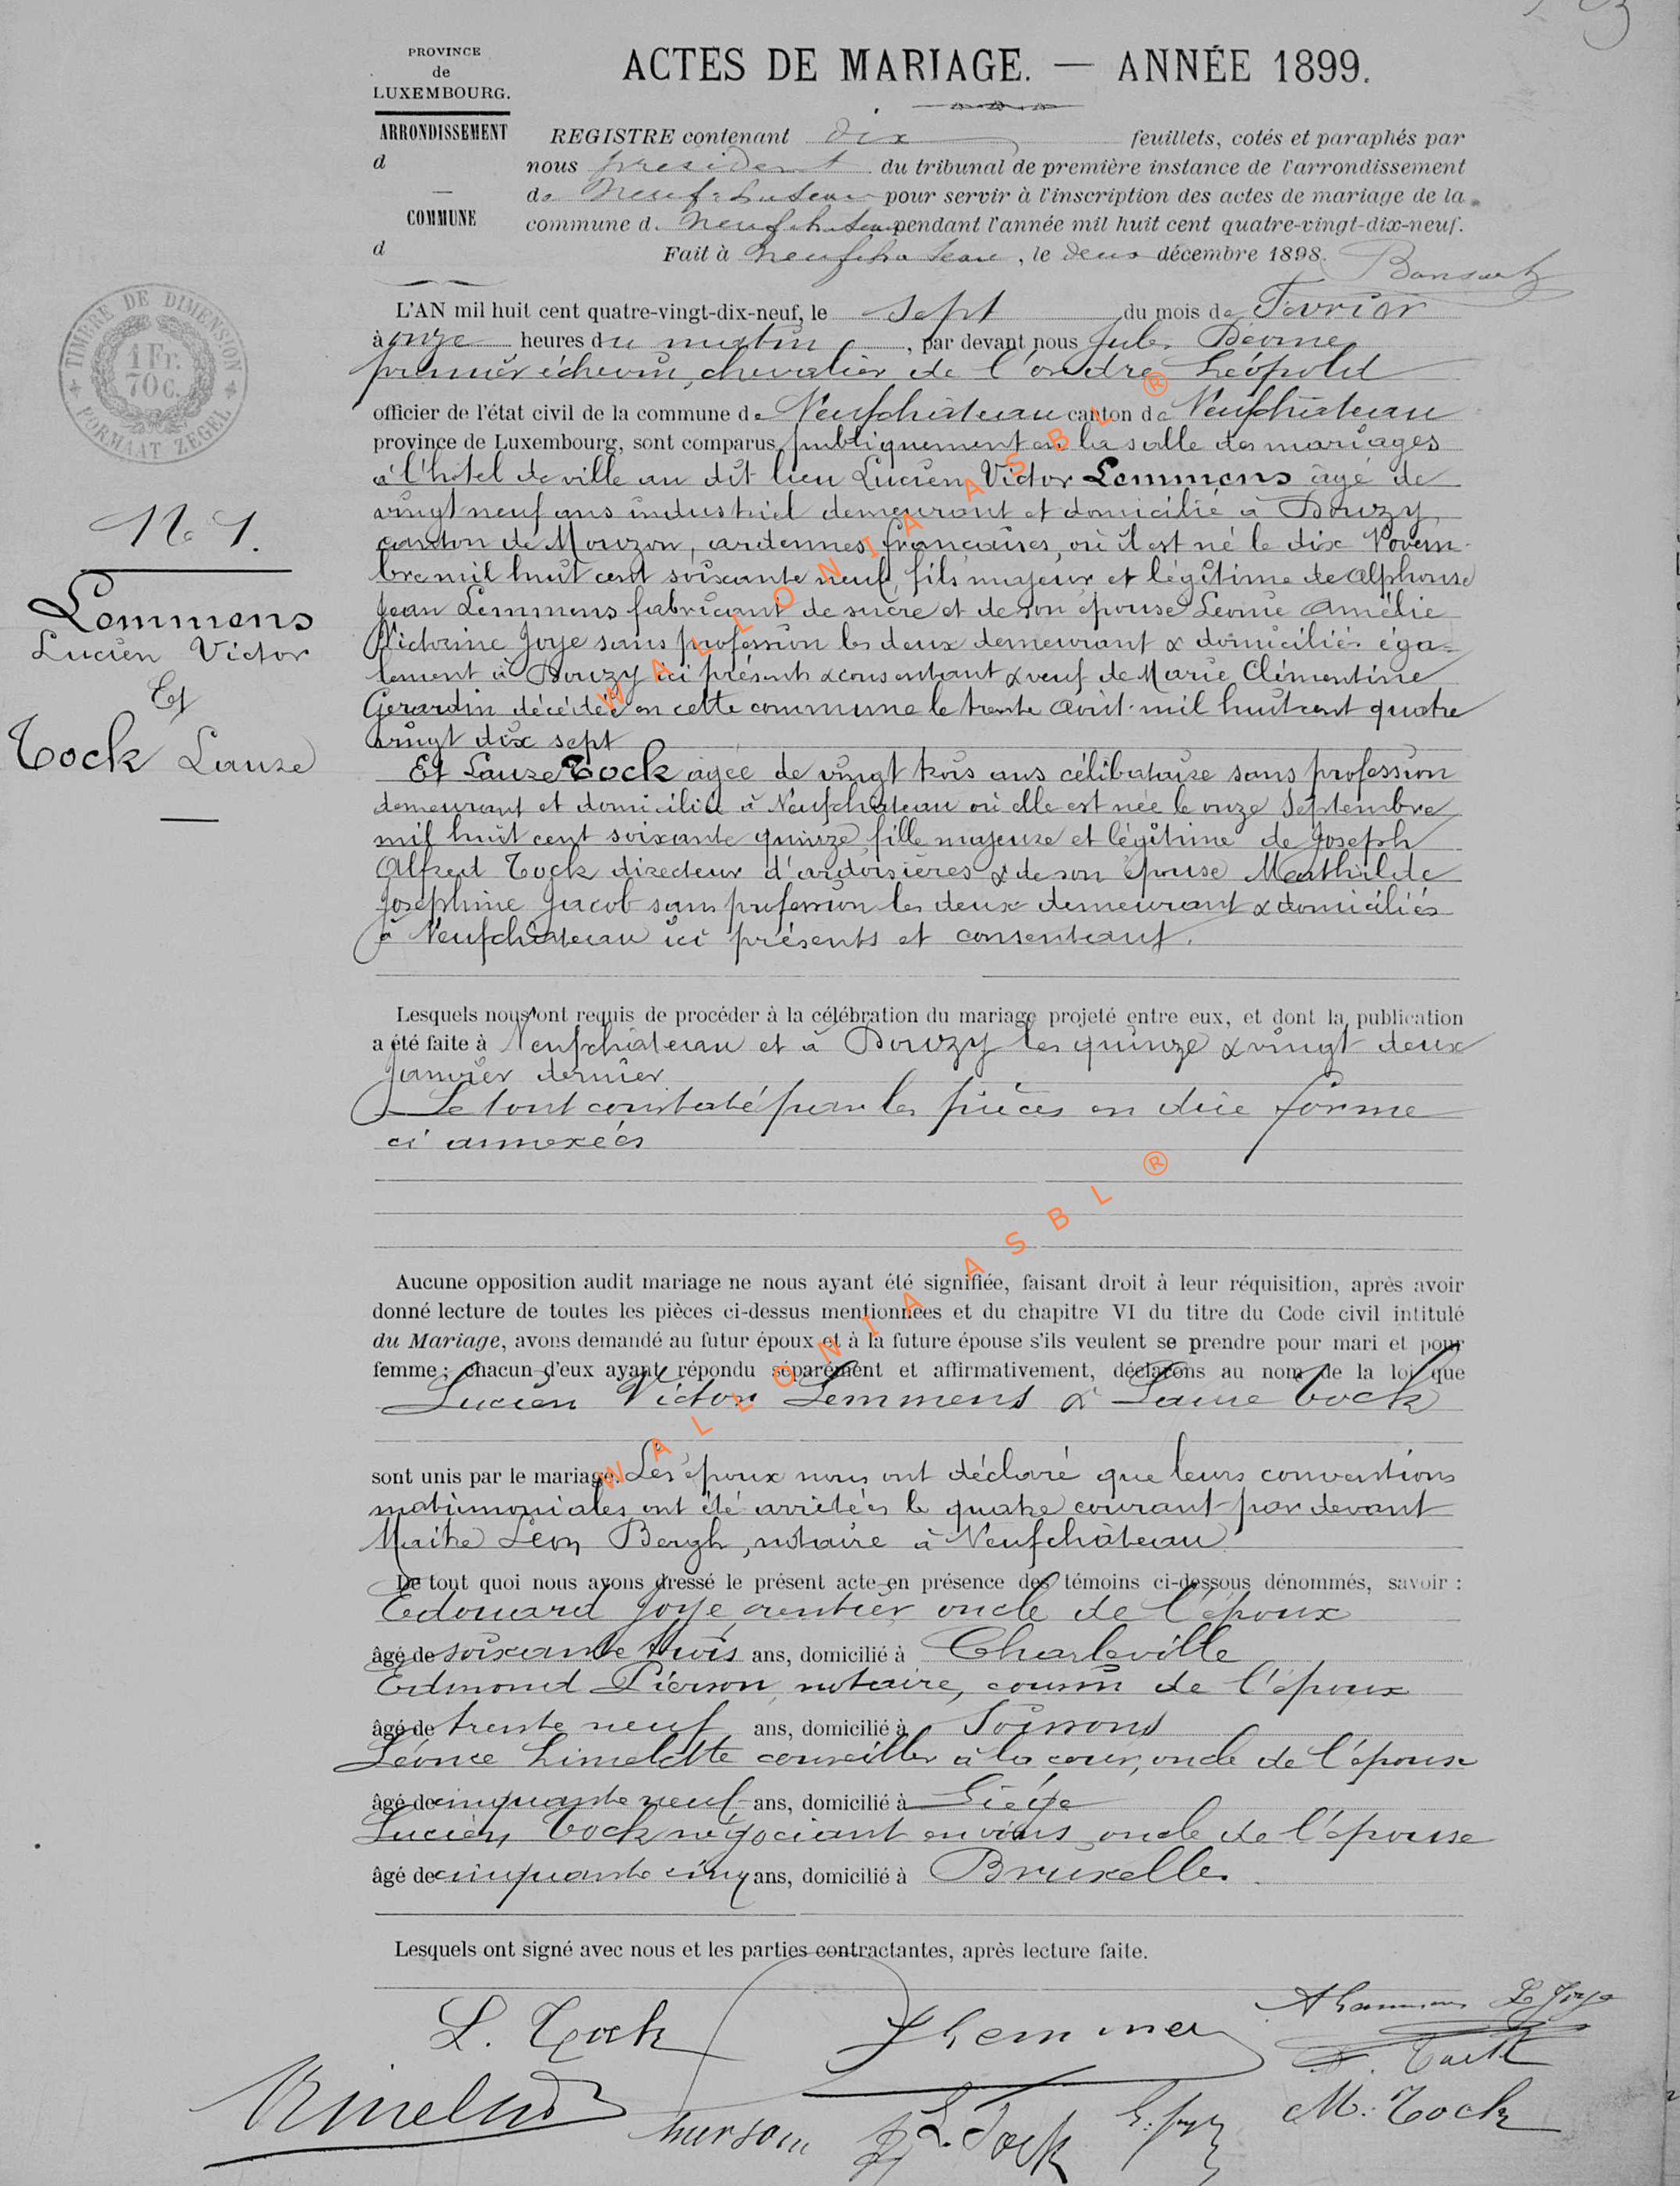 PROVINCE
de
LUXEMBOURG.
ARRONDISSEMENT
d
COMMUNE
d
ACTES DE MARIAGE. — ANNÉE 1899.
REGISTRE contenant dix feuillets, cotés et paraphés par
nous president du tribunal de première instance de l'arrondissement
de Neufchateau pour servir à l'inscription des actes de mariage de la
commune d. Neufchateau pendant l'année mil huit cent quatre-vingt-dix-neuf.
Fait à Neufchateau, le deux décembre 1898.
TIMBRE DE DIMENSION
1 Fr.
70 C.
FORMAAT ZEGEL
L'AN mil huit cent quatre-vingt-dix-neuf, le sept du mois de Février
à onze heures du matin, par devant nous Jules
premier échevin, chevalier de l'ordre Léopold
officier de l'état civil de la commune de Neufchâteau canton de Neufchâteau
province de Luxembourg, sont comparus publiquement en la salle des mariages
à l'hôtel de ville au dit lieu Lucien Victor Lemmens âgé de
vingt neuf ans industriel demeurant et domicilié à Douzy,
canton de Mouzon, ardennes françaises, où il est né le dix Novem-
bre mil huit cent soixante neuf, fils majeur et légitime de Alphonse
Jean Lemmens fabricant de sucre et de son épouse Léonie Amélie
Victorine Joye sans profession les deux demeurant & domiciliés éga=
lement à Douzy ici présents & consentant & veuf de Marie Clémentine
Gerardin décédée en cette commune le trente Août mil huit cent quatre
vingt dix sept
Et Laure Tock agée de vingt trois ans célibataire sans profession
demeurant et domiciliée à Neufchateau où elle est née le onze Septembre
mil huit cent soixante quinze fille majeure et légitime de Joseph
Alfred Tock directeur d'ardoisières & de son épouse Mathilde
Joséphine Jacob sans profession les deux demeurant & domiciliés
à Neufchâteau ici présents et consentant.
No 1.
Lemmens
Lucien Victor
Et
Tock Laure
Lesquels nous ont requis de procéder à la célébration du mariage projeté entre eux, et dont la publication
a été faite à Neufchâteau et à Douzy les quinze & vingt deux
Janvier dernier
Le tout constaté par les pièces en due forme
ci annexées
Aucune opposition audit mariage ne nous ayant été signifiée, faisant droit à leur réquisition, après avoir
donné lecture de toutes les pièces ci-dessus mentionnées et du chapitre VI du titre du Code civil intitulé
du Mariage, avons demandé au futur époux et à la future épouse s'ils veulent se prendre pour mari et pour
femme ; chacun d'eux ayant répondu séparément et affirmativement, déclarons au nom de la loi que
Lucien Victor Lemmens & Laure Tock
sont unis par le mariage. Les époux nous ont déclaré que leurs conventions
matrimoniales ont été arrêtées le quatre courant par devant
Maitre Léon Bergh, notaire à Neufchâteau
De tout quoi nous avons dressé le présent acte en présence des témoins ci-dessous dénommés, savoir :
Edouard Joye, rentier oncle de l'époux
âgé de soixante trois ans, domicilié à Charleville
Edmond Pierson notaire, cousin de l'époux
âgé de trente neuf ans, domicilié à Soissons
Léonce Limelette conseiller à la cour, oncle de l'épouse
âgé de cinquante neuf ans, domicilié à Liége
Lucien Tock négociant en vins oncle de l'épouse
âgé de cinquante cinq ans, domicilié à Bruxelles
Lesquels ont signé avec nous et les parties contractantes, après lecture faite.
L. Tock
A Lemmens L Joye
Tock
M. Tock
L. Tock
WALLONIA ASBL ®
WALLONIA ASBL ®